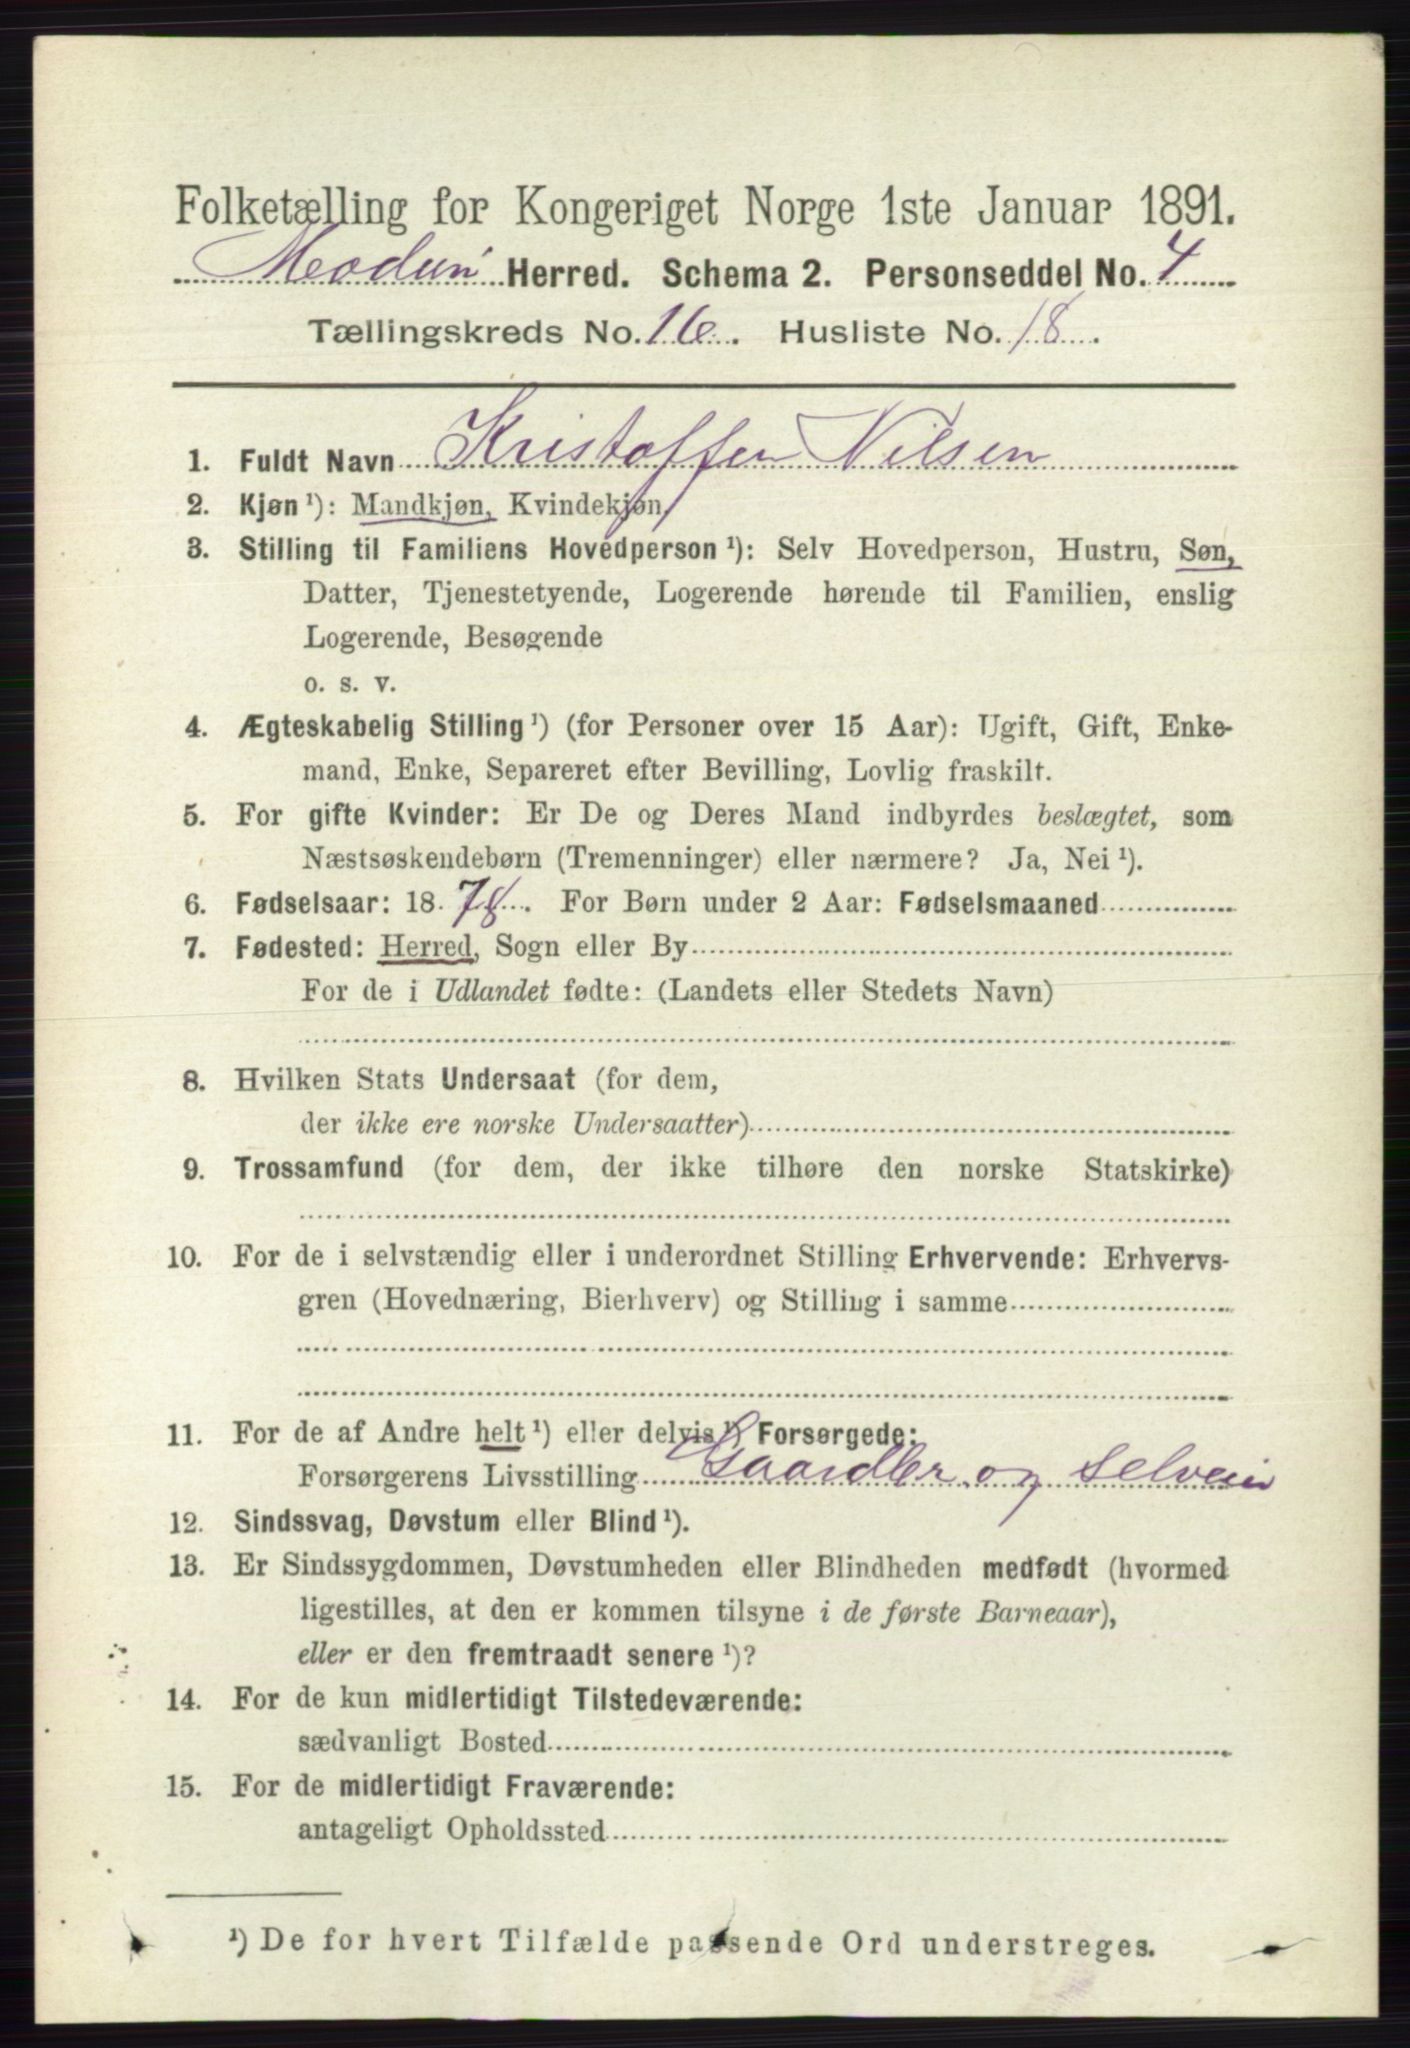 Folketælling for Kongeriget Norge 1ste Januar 1891.
Modum Herred. Schema 2. Personseddel No. 4
Tællingskreds No. 16. Husliste No. 18.
1. Fuldt Navn Kristoffer Nilsen
2. Kjøn ¹): Mandkjøn, Kvindekjøn.
3. Stilling til Familiens Hovedperson ¹): Selv Hovedperson, Hustru, Søn,
Datter, Tjenestetyende, Logerende hørende til Familien, enslig
Logerende, Besøgende
o. s. v.
4. Ægteskabelig Stilling ¹) (for Personer over 15 Aar): Ugift, Gift, Enke-
mand, Enke, Separeret efter Bevilling, Lovlig fraskilt.
5. For gifte Kvinder: Er De og Deres Mand indbyrdes beslægtet, som
Næstsøskendebørn (Tremenninger) eller nærmere? Ja, Nei ¹).
6. Fødselsaar: 1878. For Børn under 2 Aar: Fødselsmaaned
7. Fødested: Herred, Sogn eller By
For de i Udlandet fødte: (Landets eller Stedets Navn)
8. Hvilken Stats Undersaat (for dem,
der ikke ere norske Undersaatter)
9. Trossamfund (for dem, der ikke tilhøre den norske Statskirke)
10. For de i selvstændig eller i underordnet Stilling Erhvervende: Erhvervs-
gren (Hovednæring, Bierhverv) og Stilling i samme
11. For de af Andre helt ¹) eller delvis ¹) Forsørgede:
Forsørgerens Livsstilling Gaardbr. og Selveier
12. Sindssvag, Døvstum eller Blind ¹).
13. Er Sindssygdommen, Døvstumheden eller Blindheden medfødt (hvormed
ligestilles, at den er kommen tilsyne i de første Barneaar),
eller er den fremtraadt senere ¹)?
14. For de kun midlertidigt Tilstedeværende:
sædvanligt Bosted
15. For de midlertidigt Fraværende:
antageligt Opholdssted
¹) De for hvert Tilfælde passende Ord understreges.